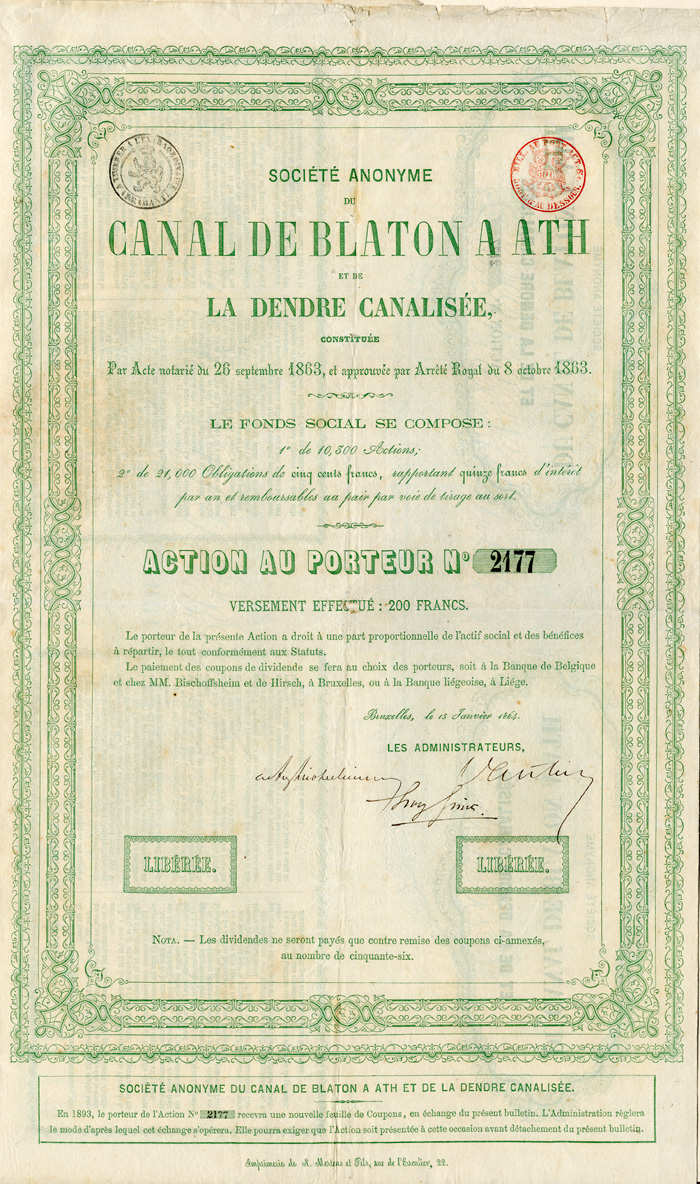 SOCIÉTÉ ANONYME
DU
CANAL DE BLATON A ATH
ET DE
LA DENDRE CANALISÉE,
CONSTITUÉE
Par Acte notarié du 26 septembre 1863, et approuvée par Arrêté Royal du 8 octobre 1863.
LE FONDS SOCIAL SE COMPOSE:
1º de 10,300 Actions;
2º de 21,000 Obligations de cinq cents francs, rapportant quinze francs d'intérêt
par an et remboursables au pair par voie de tirage au sort.
ACTION AU PORTEUR Nº 2177
VERSEMENT EFFECTUÉ : 200 FRANCS.
Le porteur de la présente Action a droit à une part proportionnelle de l'actif social et des bénéfices
à répartir, le tout conformément aux Statuts.
Le paiement des coupons de dividende se fera au choix des porteurs, soit à la Banque de Belgique
et chez MM. Bischoffsheim et de Hirsch, à Bruxelles, ou à la Banque liégeoise, à Liége.
Bruxelles, le 15 Janvier 1864.
LES ADMINISTRATEURS,
LIBÉRÉE. LIBÉRÉE.
NOTA. — Les dividendes ne seront payés que contre remise des coupons ci-annexés,
au nombre de cinquante-six.
SOCIÉTÉ ANONYME DU CANAL DE BLATON A ATH ET DE LA DENDRE CANALISÉE.
En 1893, le porteur de l'Action Nº 2177 recevra une nouvelle feuille de Coupons, en échange du présent bulletin. L'Administration règlera
le mode d'après lequel cet échange s'opérera. Elle pourra exiger que l'Action soit présentée à cette occasion avant détachement du présent bulletin.
Imprimerie de A. Mertens et Fils, rue de l'Escalier, 22.